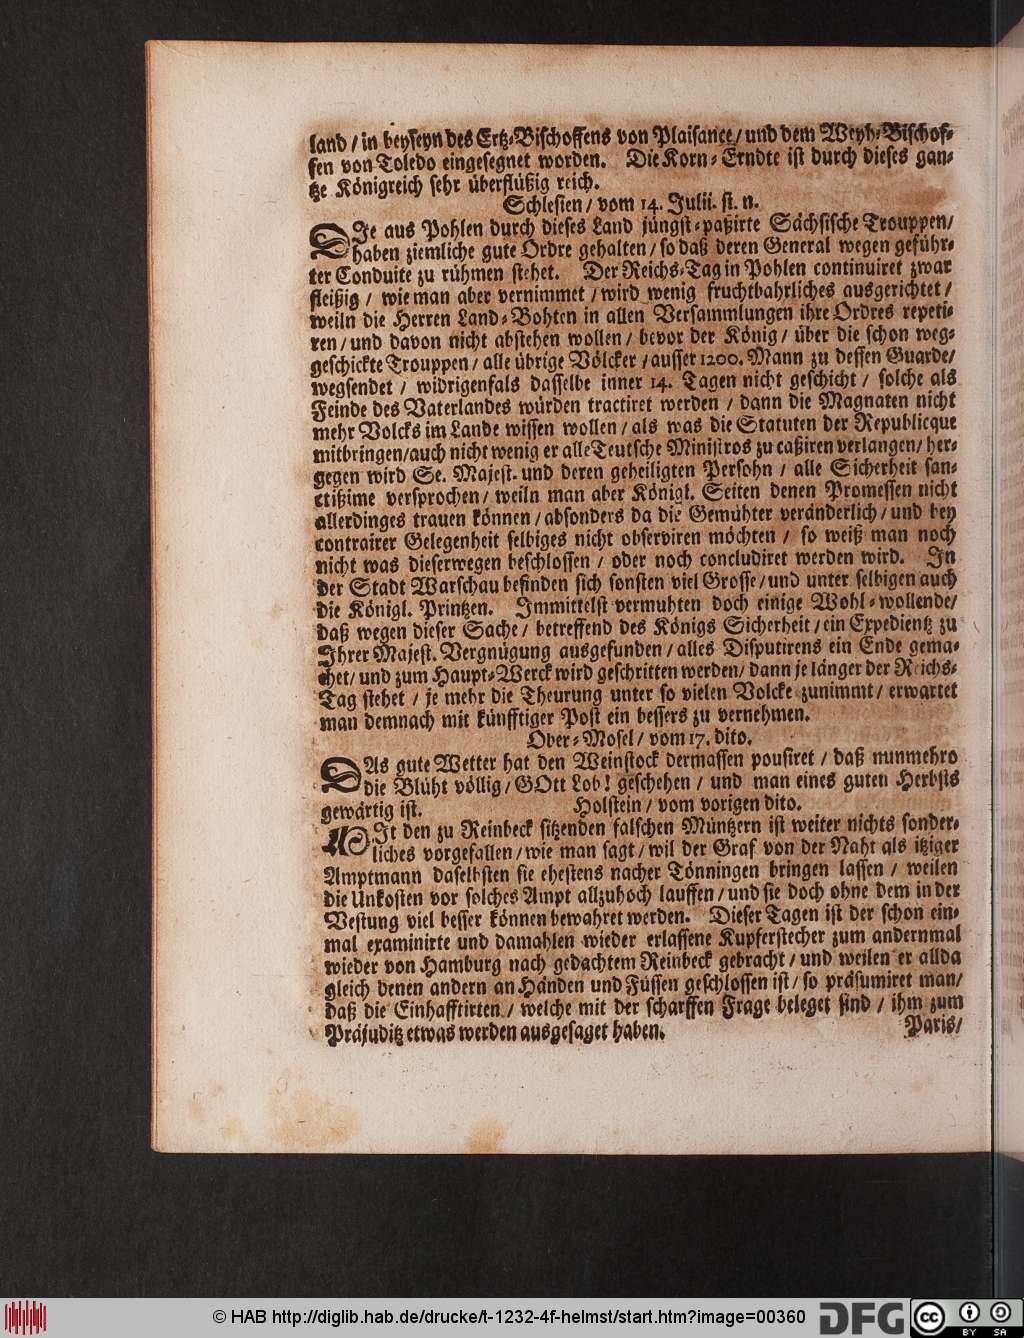 land / in beyseyn des Ertz-Bischoffens von Plaisance / und dem Weyh-Bischof-
fen von Toledo eingesegnet worden. Die Korn-Erndte ist durch dieses gan-
tze Königreich sehr überflüßig reich.
Schlesien / vom 14. Julii. st. n.
DIe aus Pohlen durch dieses Land jüngst-paßirte Sächsische Trouppen /
haben ziemliche gute Ordre gehalten / so daß deren General wegen geführ-
ter Conduite zu rühmen stehet. Der Reichs-Tag in Pohlen continuiret zwar
fleißig / wie man aber vernimmet / wird wenig fruchtbahrliches ausgerichtet /
weiln die Herren Land-Bohten in allen Versammlungen ihre Ordres repeti-
ren / und davon nicht abstehen wollen / bevor der König / über die schon weg-
geschickte Trouppen / alle übrige Völcker / ausser 1200. Mann zu dessen Guarde /
wegsendet / widrigenfals dasselbe inner 14. Tagen nicht geschicht / solche als
Feinde des Vaterlandes würden tractiret werden / dann die Magnaten nicht
mehr Volcks im Lande wissen wollen / als was die Statuten der Republicque
mitbringen / auch nicht wenig er alle Teutsche Ministros zu caßiren verlangen / her-
gegen wird Se. Majest. und deren geheiligten Persohn / alle Sicherheit san-
ctißime versprochen / weiln man aber Königl. Seiten denen Promessen nicht
allerdinges trauen können / absonders da die Gemühter veränderlich / und bey
contrairer Gelegenheit selbiges nicht observiren möchten / so weiß man noch
nicht was dieserwegen beschlossen / oder noch concludiret werden wird. In
der Stadt Warschau befinden sich sonsten viel Grosse / und unter selbigen auch
die Königl. Printzen. Immittelst vermuhten doch einige Wohl-wollende /
daß wegen dieser Sache / betreffend des Königs Sicherheit / ein Expedientz zu
Ihrer Majest. Vergnügung ausgefunden / alles Disputirens ein Ende gema-
chet / und zum Haupt-Werck wird geschritten werden / dann je länger der Reichs-
Tag stehet / je mehr die Theurung unter so vielen Volcke zunimmt / erwartet
man demnach mit künfftiger Post ein bessers zu vernehmen.
Ober-Mosel / vom 17. dito.
DAs gute Wetter hat den Weinstock dermassen pousiret / daß nunmehro
die Blüht völlig / GOtt Lob! geschehen / und man eines guten Herbsts
gewärtig ist. Holstein / vom vorigen dito.
MIt den zu Reinbeck sitzenden falschen Müntzern ist weiter nichts sonder-
liches vorgefallen / wie man sagt / wil der Graf von der Naht als itziger
Amptmann daselbsten sie ehestens nacher Tönningen bringen lassen / weilen
die Unkosten vor solches Ampt allzuhoch lauffen / und sie doch ohne dem in der
Vestung viel besser können bewahret werden. Dieser Tagen ist der schon ein-
mal examinirte und damahlen wieder erlassene Kupferstecher zum andernmal
wieder von Hamburg nach gedachtem Reinbeck gebracht / und weilen er allda
gleich denen andern an Händen und Füssen geschlossen ist / so präsumiret man /
daß die Einhafftirten / welche mit der scharffen Frage beleget sind / ihm zum
Präjuditz etwas werden ausgesaget haben. Paris /
© HAB http://diglib.hab.de/drucke/t-1232-4f-helmst/start.htm?image=00360
DFG
cc BY SA